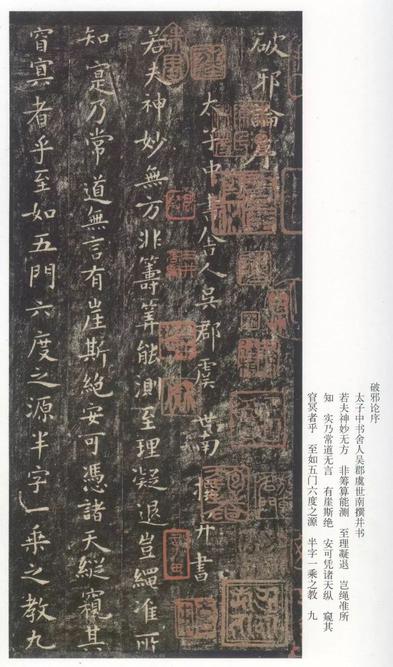 破邪论序
太子中书舍人吴郡虞世南撰并书
若夫神妙无方 非筹算能测 至理凝退 岂绳准所
知 实乃常道无言 有崖斯绝 安可凭诸天纵 窥其
窅冥者乎 至如五门六度之源 半字一乘之教 九
破邪論序
太子中書舍人吳郡虞世南撰并書
若夫神妙無方非籌筭能測至理凝退豈繩准所
知寔乃常道無言有崖斯絕安可憑諸天縱窺其
窅冥者乎至如五門六度之源半字一乘之教九